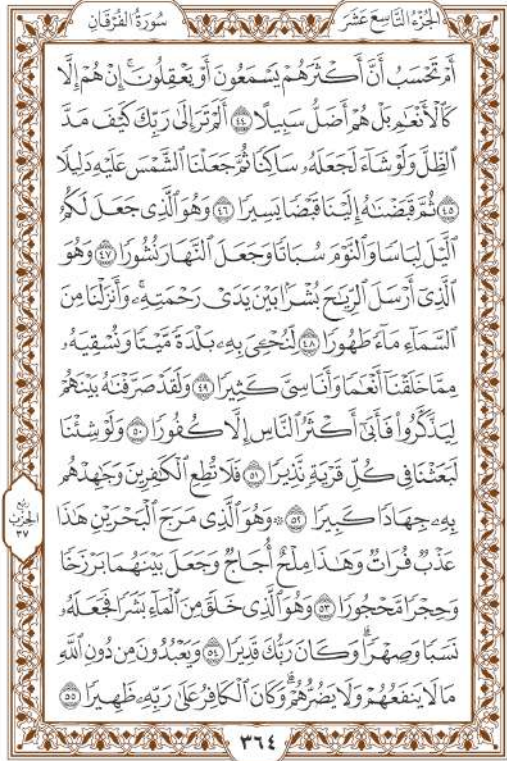 الجزء التاسع عشر
سورة الفرقان
أَمْ تَحْسَبُ أَنَّ أَكْثَرَهُمْ يَسْمَعُونَ أَوْ يَعْقِلُونَ ۚ إِنْ هُمْ إِلَّا
كَالْأَنْعَٰمِ بَلْ هُمْ أَضَلُّ سَبِيلًا ٤٤ أَلَمْ تَرَ إِلَىٰ رَبِّكَ كَيْفَ مَدَّ
ٱلظِّلَّ وَلَوْ شَآءَ لَجَعَلَهُۥ سَاكِنًا ثُمَّ جَعَلْنَا ٱلشَّمْسَ عَلَيْهِ دَلِيلًا
٤٥ ثُمَّ قَبَضْنَٰهُ إِلَيْنَا قَبْضًا يَسِيرًا ٤٦ وَهُوَ ٱلَّذِى جَعَلَ لَكُمُ
ٱلَّيْلَ لِبَاسًا وَٱلنَّوْمَ سُبَاتًا وَجَعَلَ ٱلنَّهَارَ نُشُورًا ٤٧ وَهُوَ
ٱلَّذِىٓ أَرْسَلَ ٱلرِّيَٰحَ بُشْرًۢا بَيْنَ يَدَىْ رَحْمَتِهِۦ ۚ وَأَنزَلْنَا مِنَ
ٱلسَّمَآءِ مَآءً طَهُورًا ٤٨ لِّنُحْـِۧىَ بِهِۦ بَلْدَةً مَّيْتًا وَنُسْقِيَهُۥ
مِمَّا خَلَقْنَآ أَنْعَٰمًا وَأَنَاسِىَّ كَثِيرًا ٤٩ وَلَقَدْ صَرَّفْنَٰهُ بَيْنَهُمْ
لِيَذَّكَّرُوا۟ فَأَبَىٰٓ أَكْثَرُ ٱلنَّاسِ إِلَّا كُفُورًا ٥٠ وَلَوْ شِئْنَا
لَبَعَثْنَا فِى كُلِّ قَرْيَةٍ نَّذِيرًا ٥١ فَلَا تُطِعِ ٱلْكَٰفِرِينَ وَجَٰهِدْهُم
بِهِۦ جِهَادًا كَبِيرًا ٥٢ ۞ وَهُوَ ٱلَّذِى مَرَجَ ٱلْبَحْرَيْنِ هَٰذَا
عَذْبٌ فُرَاتٌ وَهَٰذَا مِلْحٌ أُجَاجٌ وَجَعَلَ بَيْنَهُمَا بَرْزَخًا
وَحِجْرًا مَّحْجُورًا ٥٣ وَهُوَ ٱلَّذِى خَلَقَ مِنَ ٱلْمَآءِ بَشَرًا فَجَعَلَهُۥ
نَسَبًا وَصِهْرًا ۗ وَكَانَ رَبُّكَ قَدِيرًا ٥٤ وَيَعْبُدُونَ مِن دُونِ ٱللَّهِ
مَا لَا يَنفَعُهُمْ وَلَا يَضُرُّهُمْ ۗ وَكَانَ ٱلْكَافِرُ عَلَىٰ رَبِّهِۦ ظَهِيرًا ٥٥
ربع
الحزب
٣٧
٣٦٤